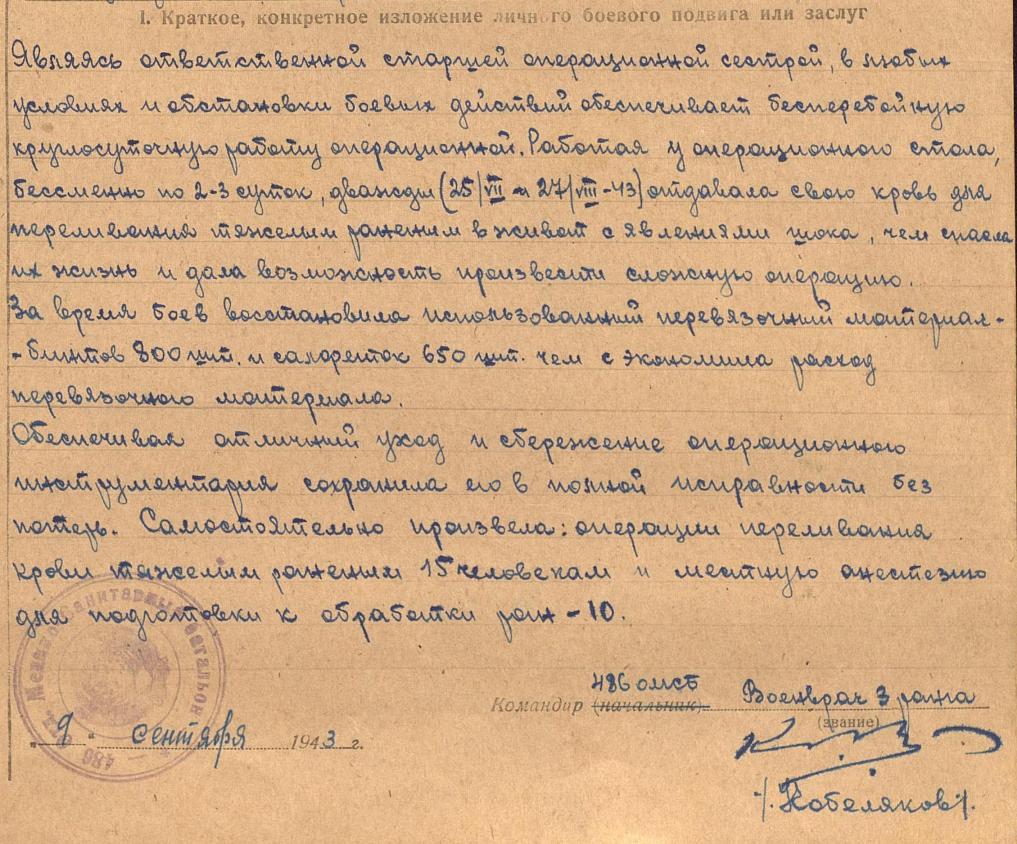 I. Краткое, конкретное изложение личного боевого подвига или заслуг
Являясь ответственной старшей операционной сестрой, в любых
условиях и обстановки боевых действий обеспечивает бесперебойную
круглосуточную работу операционной. Работая у операционного стола,
бессменно по 2-3 суток, дважды (25/VII и 27/VIII-43) отдавала свою кровь для
переливания тяжелым раненым в живот с явлениями шока, чем спасла
их жизнь и дала возможность произвести сложную операцию.
За время боев восстановила использованный перевязочный материал-
-бинтов 800 шт. и салфеток 650 шт. чем с экономила расход
перевязочного материала.
Обеспечивая отличный уход и сбережение операционного
инструментария сохранила его в полной исправности без
потерь. Самостоятельно произвела: операции переливания
крови тяжелым раненым 15 человекам и местную анестезию
для подготовки к обработки ран - 10.
486 омсб
Командир (начальник) Военврач 3 ранга
(звание)
"9" сентября 1943 г.
/.Кобеляков/.
Отд. Медико-Санитарный Батальон
486